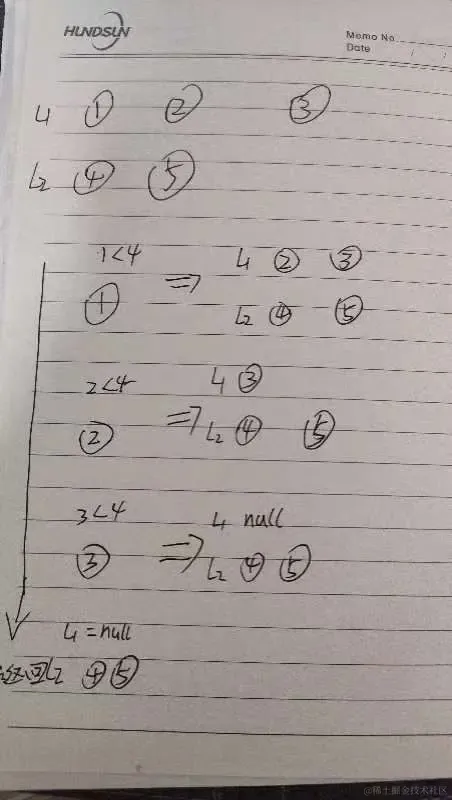 HUNDSUN
Memo No.
Date / /
L1 ① ② ③
L2 ④ ⑤
1<4
① ⇒ L1 ② ③
L2 ④ ⑤
2<4 L1 ③
② ⇒ L2 ④ ⑤
3<4 L1 null
③ ⇒ L2 ④ ⑤
L1 = null
返回L2 ④ ⑤
@稀土掘金技术社区